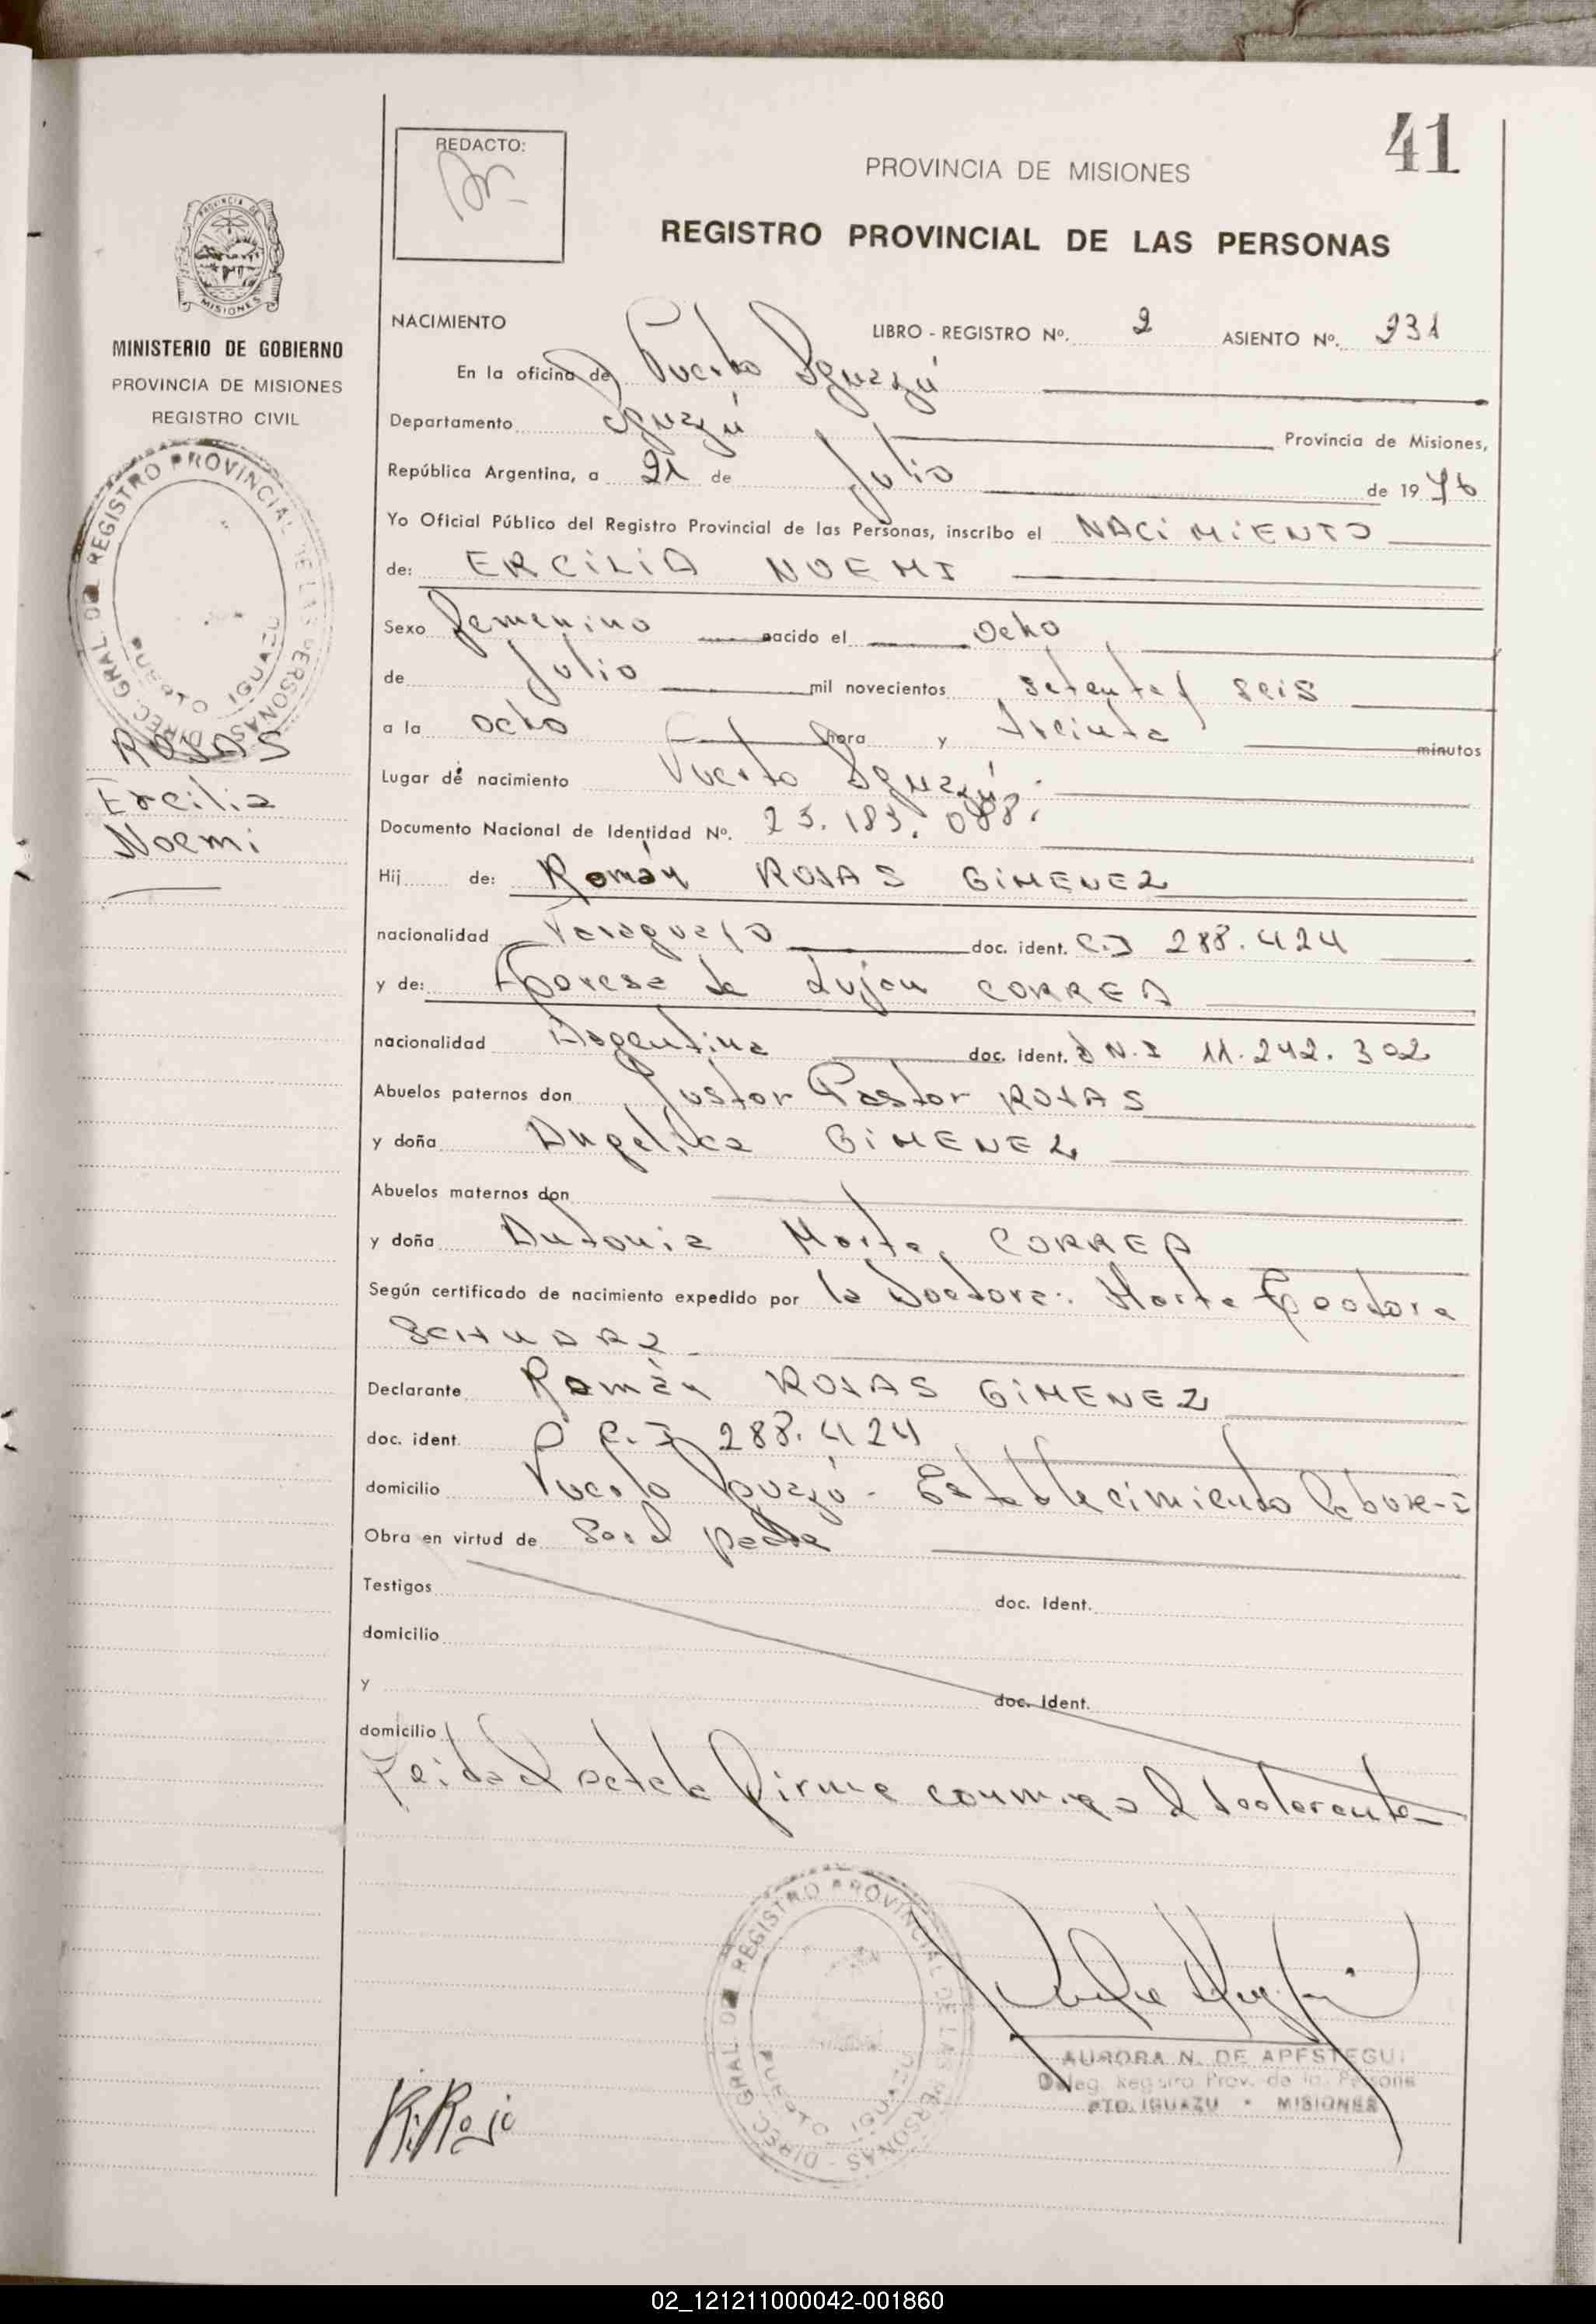 41
REDACTO:
PROVINCIA DE MISIONES
REGISTRO PROVINCIAL DE LAS PERSONAS
PROVINCIA DE
MISIONES
MINISTERIO DE GOBIERNO
PROVINCIA DE MISIONES
REGISTRO CIVIL
DIREC. GRAL. DEL REGISTRO PROVINCIAL DE LAS PERSONAS
PUERTO IGUAZU
ROJAS
Ercilia
Noemi
NACIMIENTO LIBRO - REGISTRO Nº. 2 ASIENTO Nº. 231
En la oficina de Puerto Iguazú
Departamento Iguazú Provincia de Misiones,
República Argentina, a 21 de Julio de 1976
Yo Oficial Público del Registro Provincial de las Personas, inscribo el NACIMIENTO
de: ERCILIA NOEMI
Sexo femenino nacido el ocho
de Julio mil novecientos setenta y seis
a la ocho hora y treinta minutos
Lugar de nacimiento Puerto Iguazú
Documento Nacional de Identidad Nº. 25.183.088.
Hij de: Román ROJAS GIMENEZ
nacionalidad Paraguayo doc. ident. C.I 288.424
y de: Teresa de Luján CORREA
nacionalidad Argentina doc. ident. D N.I 11.242.302
Abuelos paternos don Pastor ROJAS
y doña Angelica GIMENEZ
Abuelos maternos don
y doña Antonia CORREA
Según certificado de nacimiento expedido por la Doctora: Teodora
Declarante Román ROJAS GIMENEZ
doc. ident. C.I 288.424
domicilio Puerto Iguazú - Establecimiento
Obra en virtud de Ser el padre
Testigos doc. Ident.
domicilio
y doc. Ident.
domicilio
Leida el acta la firma conmigo el declarante
DIREC. GRAL. DEL REGISTRO PROVINCIAL DE LAS PERSONAS
PUERTO IGUAZU
AURORA N. DE APESTEGUI
Deleg. Registro Prov. de la Persona
PTO. IGUAZU - MISIONES
R. Roja
02_121211000042-001860